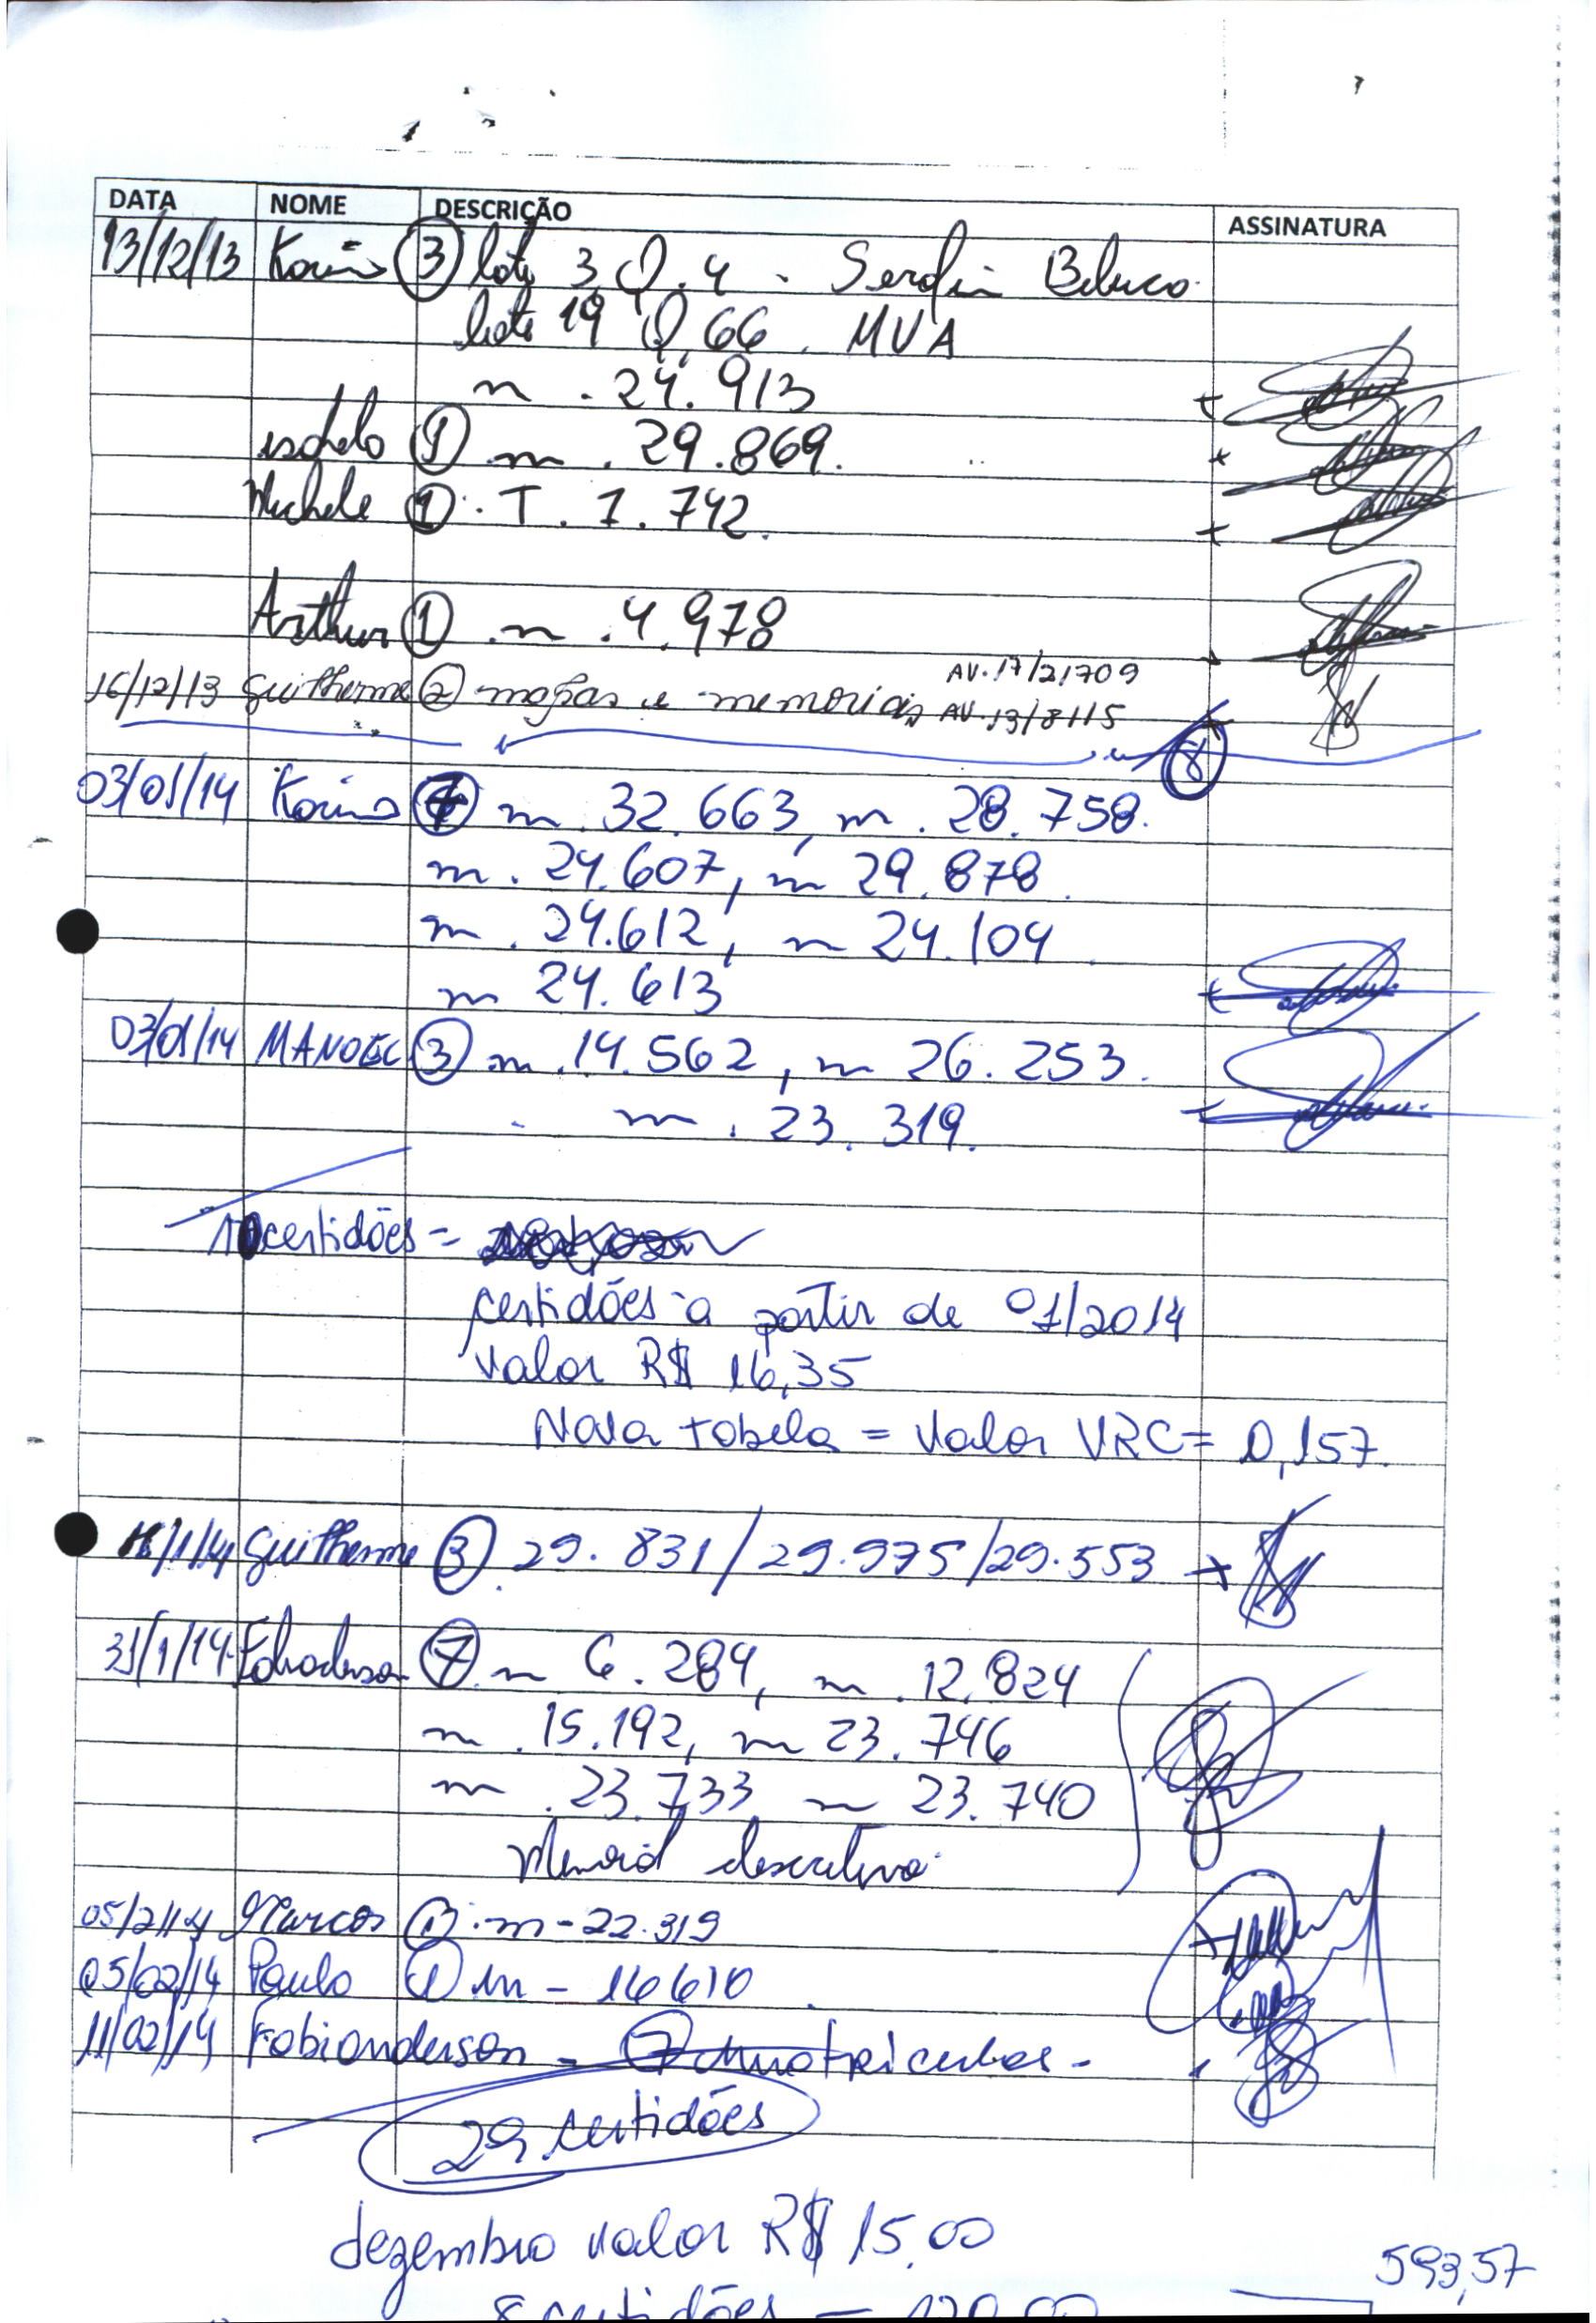 DATA NOME DESCRIÇÃO ASSINATURA
13/12/13 3 lote 3, Q. 4 -
lote 19 Q, 66. MVA
m. 24.913
1 m. 29.869.
Michele 1. T. 7.742.
Arthur 1 . m. 4.978
AV.17/21709
16/12/13 Guilherme 2 mapas e memoriais AV.13/8115
8
03/01/14 m. 32.663, m. 28.758.
m. 24.607, m 29.878.
m. 24.612, m 24.104.
m 24.613
03/01/14 MANOEL 3 m. 14.562, m 26.253.
m. 23.319.
10 certidões =
certidões a partir de 01/2014
valor R$ 16,35
Nova tabela = valor VRC = 0,157.
Guilherme 3 29.831/29.975/29.553
31/1/14 7 m 6.284, m. 12.824
m. 15.192, m 23.746
m. 23.733 m 23.740
Memorial descritivo
05/2/14 Marcos 1. m-22.319
05/02/14 Paulo 1 m - 16610
11/02/14 Fabianderson - 7 matriculas -
29 certidões
dezembro valor R$ 15,00
593,57
8 certidões = 120,00